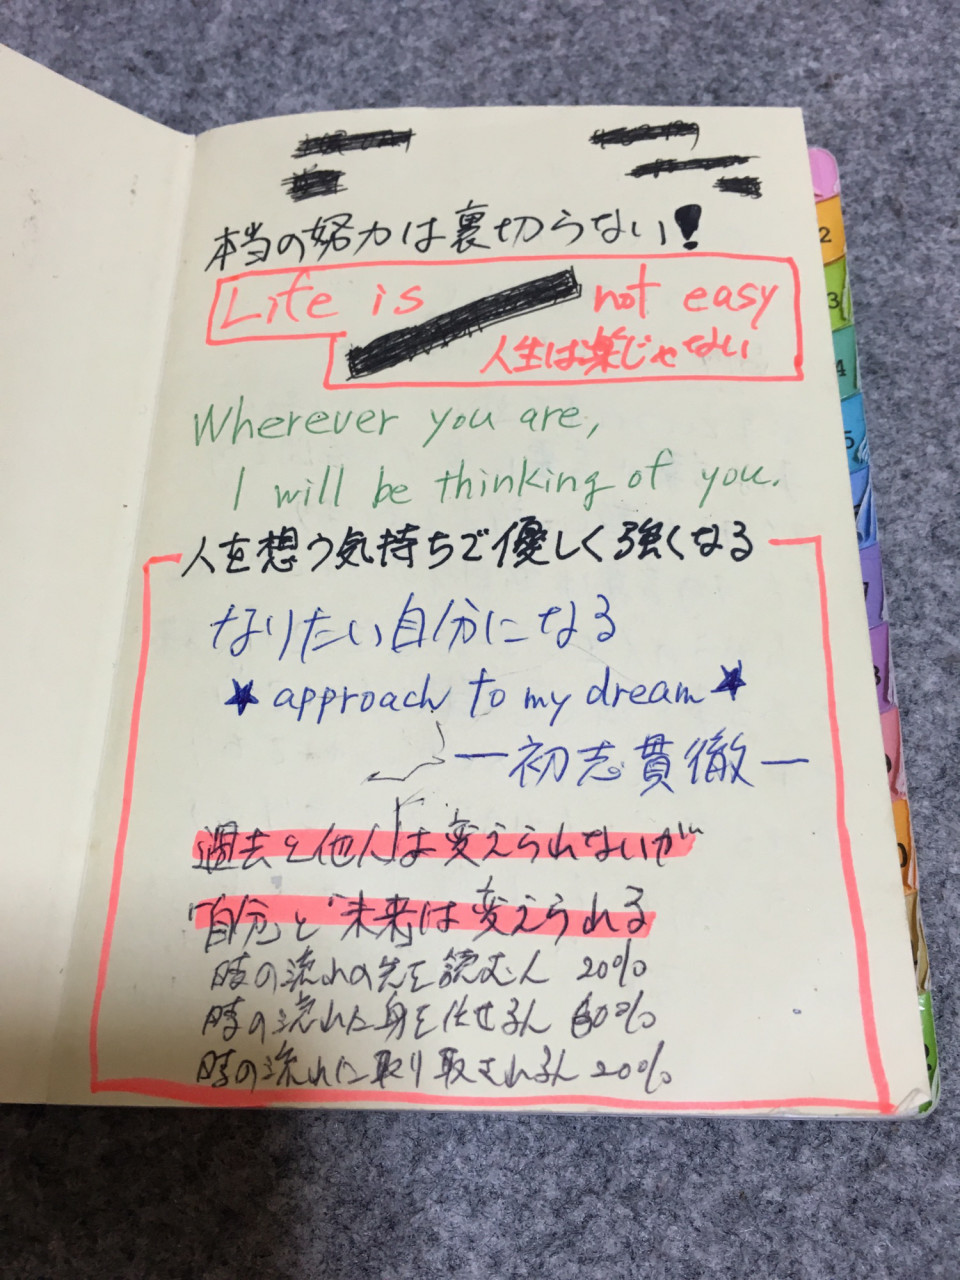 本当の努力は裏切らない!
Life is not easy
人生は楽じゃない
Wherever you are,
I will be thinking of you.
人を想う気持ちで優しく強くなる
なりたい自分になる
★approach to my dream★
―初志貫徹―
過去と他人は変えられないが
"自分"と"未来"は変えられる
時の流れの先を読む人 20%
時の流れに身を任せる人 60%
時の流れに取り取される人 20%
2
3
4
5
7
8